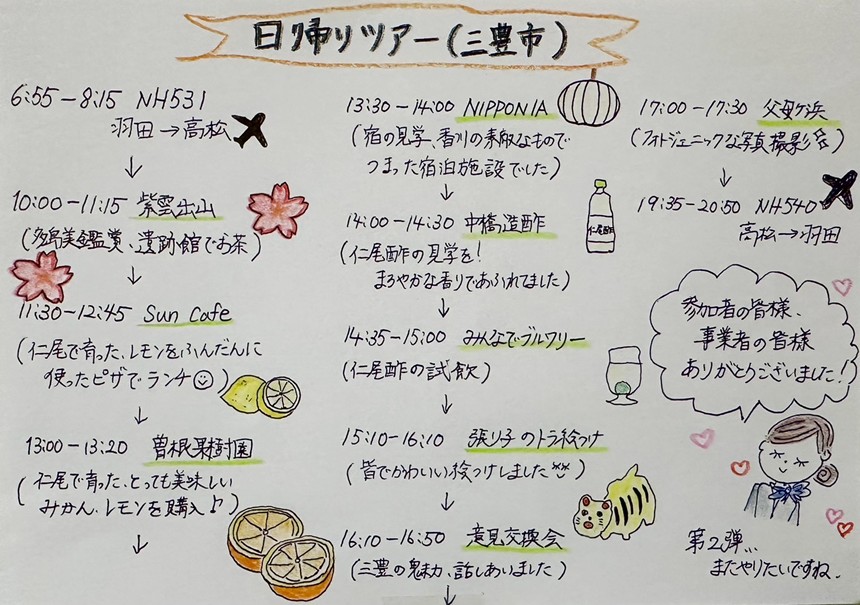 日帰りツアー(三豊市)
6:55-8:15 NH531
羽田→高松
↓
10:00-11:15 紫雲出山
(多島美鑑賞、遺跡館でお茶)
↓
11:30-12:45 Sun Cafe
(仁尾で育った、レモンをふんだんに
使ったピザでランチ☺)
↓
13:00-13:20 曽根果樹園
(仁尾で育った、とっても美味しい
みかん、レモンを購入♪)
↓
13:30-14:00 NIPPONIA
(宿の見学、香川の素敵なもので
つまった宿泊施設でした)
↓
14:00-14:30 中橋造酢
(仁尾酢の見学を!
まろやかな香りであふれてました)
仁尾酢
↓
14:35-15:00 みんなでブルワリー
(仁尾酢の試飲)
↓
15:10-16:10 張り子のトラ絵つけ
(皆でかわいい絵つけしました)
↓
16:10-16:50 意見交換会
(三豊の魅力、話しあいました)
↓
17:00-17:30 父母ヶ浜
(フォトジェニックな写真撮影)
↓
19:35-20:50 NH540
高松→羽田
参加者の皆様、
事業者の皆様
ありがとうございました!
第2弾…
またやりたいですね。